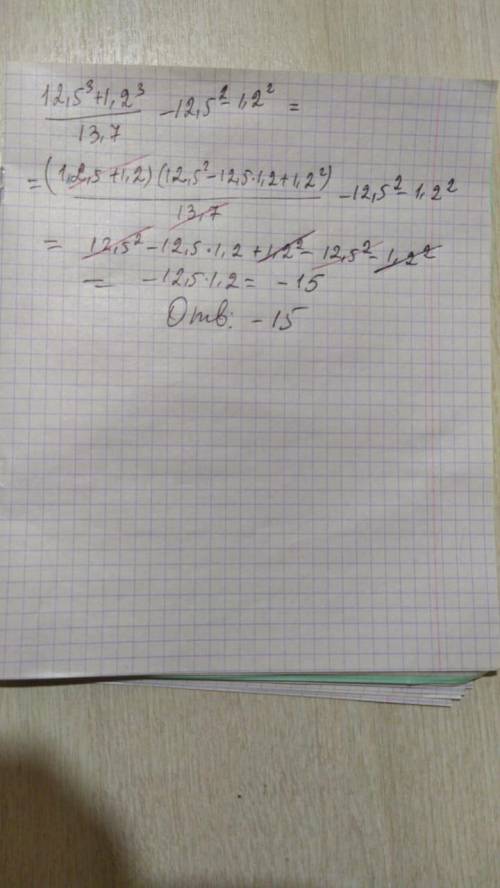 12,5³+1,2³/13,7 -12,5²-1,2² =
= (12,5+1,2)(12,5²-12,5·1,2+1,2²)/13,7 -12,5²-1,2²
= 12,5²-12,5·1,2+1,2²-12,5²-1,2²
= -12,5·1,2= -15
Отв: -15